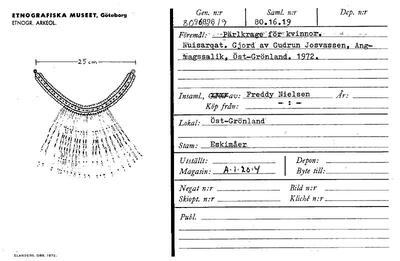 ETNOGRAFISKA MUSEET, Göteborg
ETNOGR. ARKEOL.
25 cm
ELANDERS, GBG. 1972.
Gen. n:r Saml. n:r Dep. n:r
80.16.19
Föremål: Pärlkrage för kvinnor.
Nuisarqat. Gjord av Gudrun Josvassen, Ang-
magssalik, Öst-Grönland. 1972.
Insaml. av: Freddy Nielsen År:
Köp från: - : -
Lokal: Öst-Grönland
Stam: Eskimåer
Utställt: Depon:
Magasin: A.1.20.4 Byte till:
Negat n:r Bild n:r
Skiopt. n:r Kliché n:r
Publ.